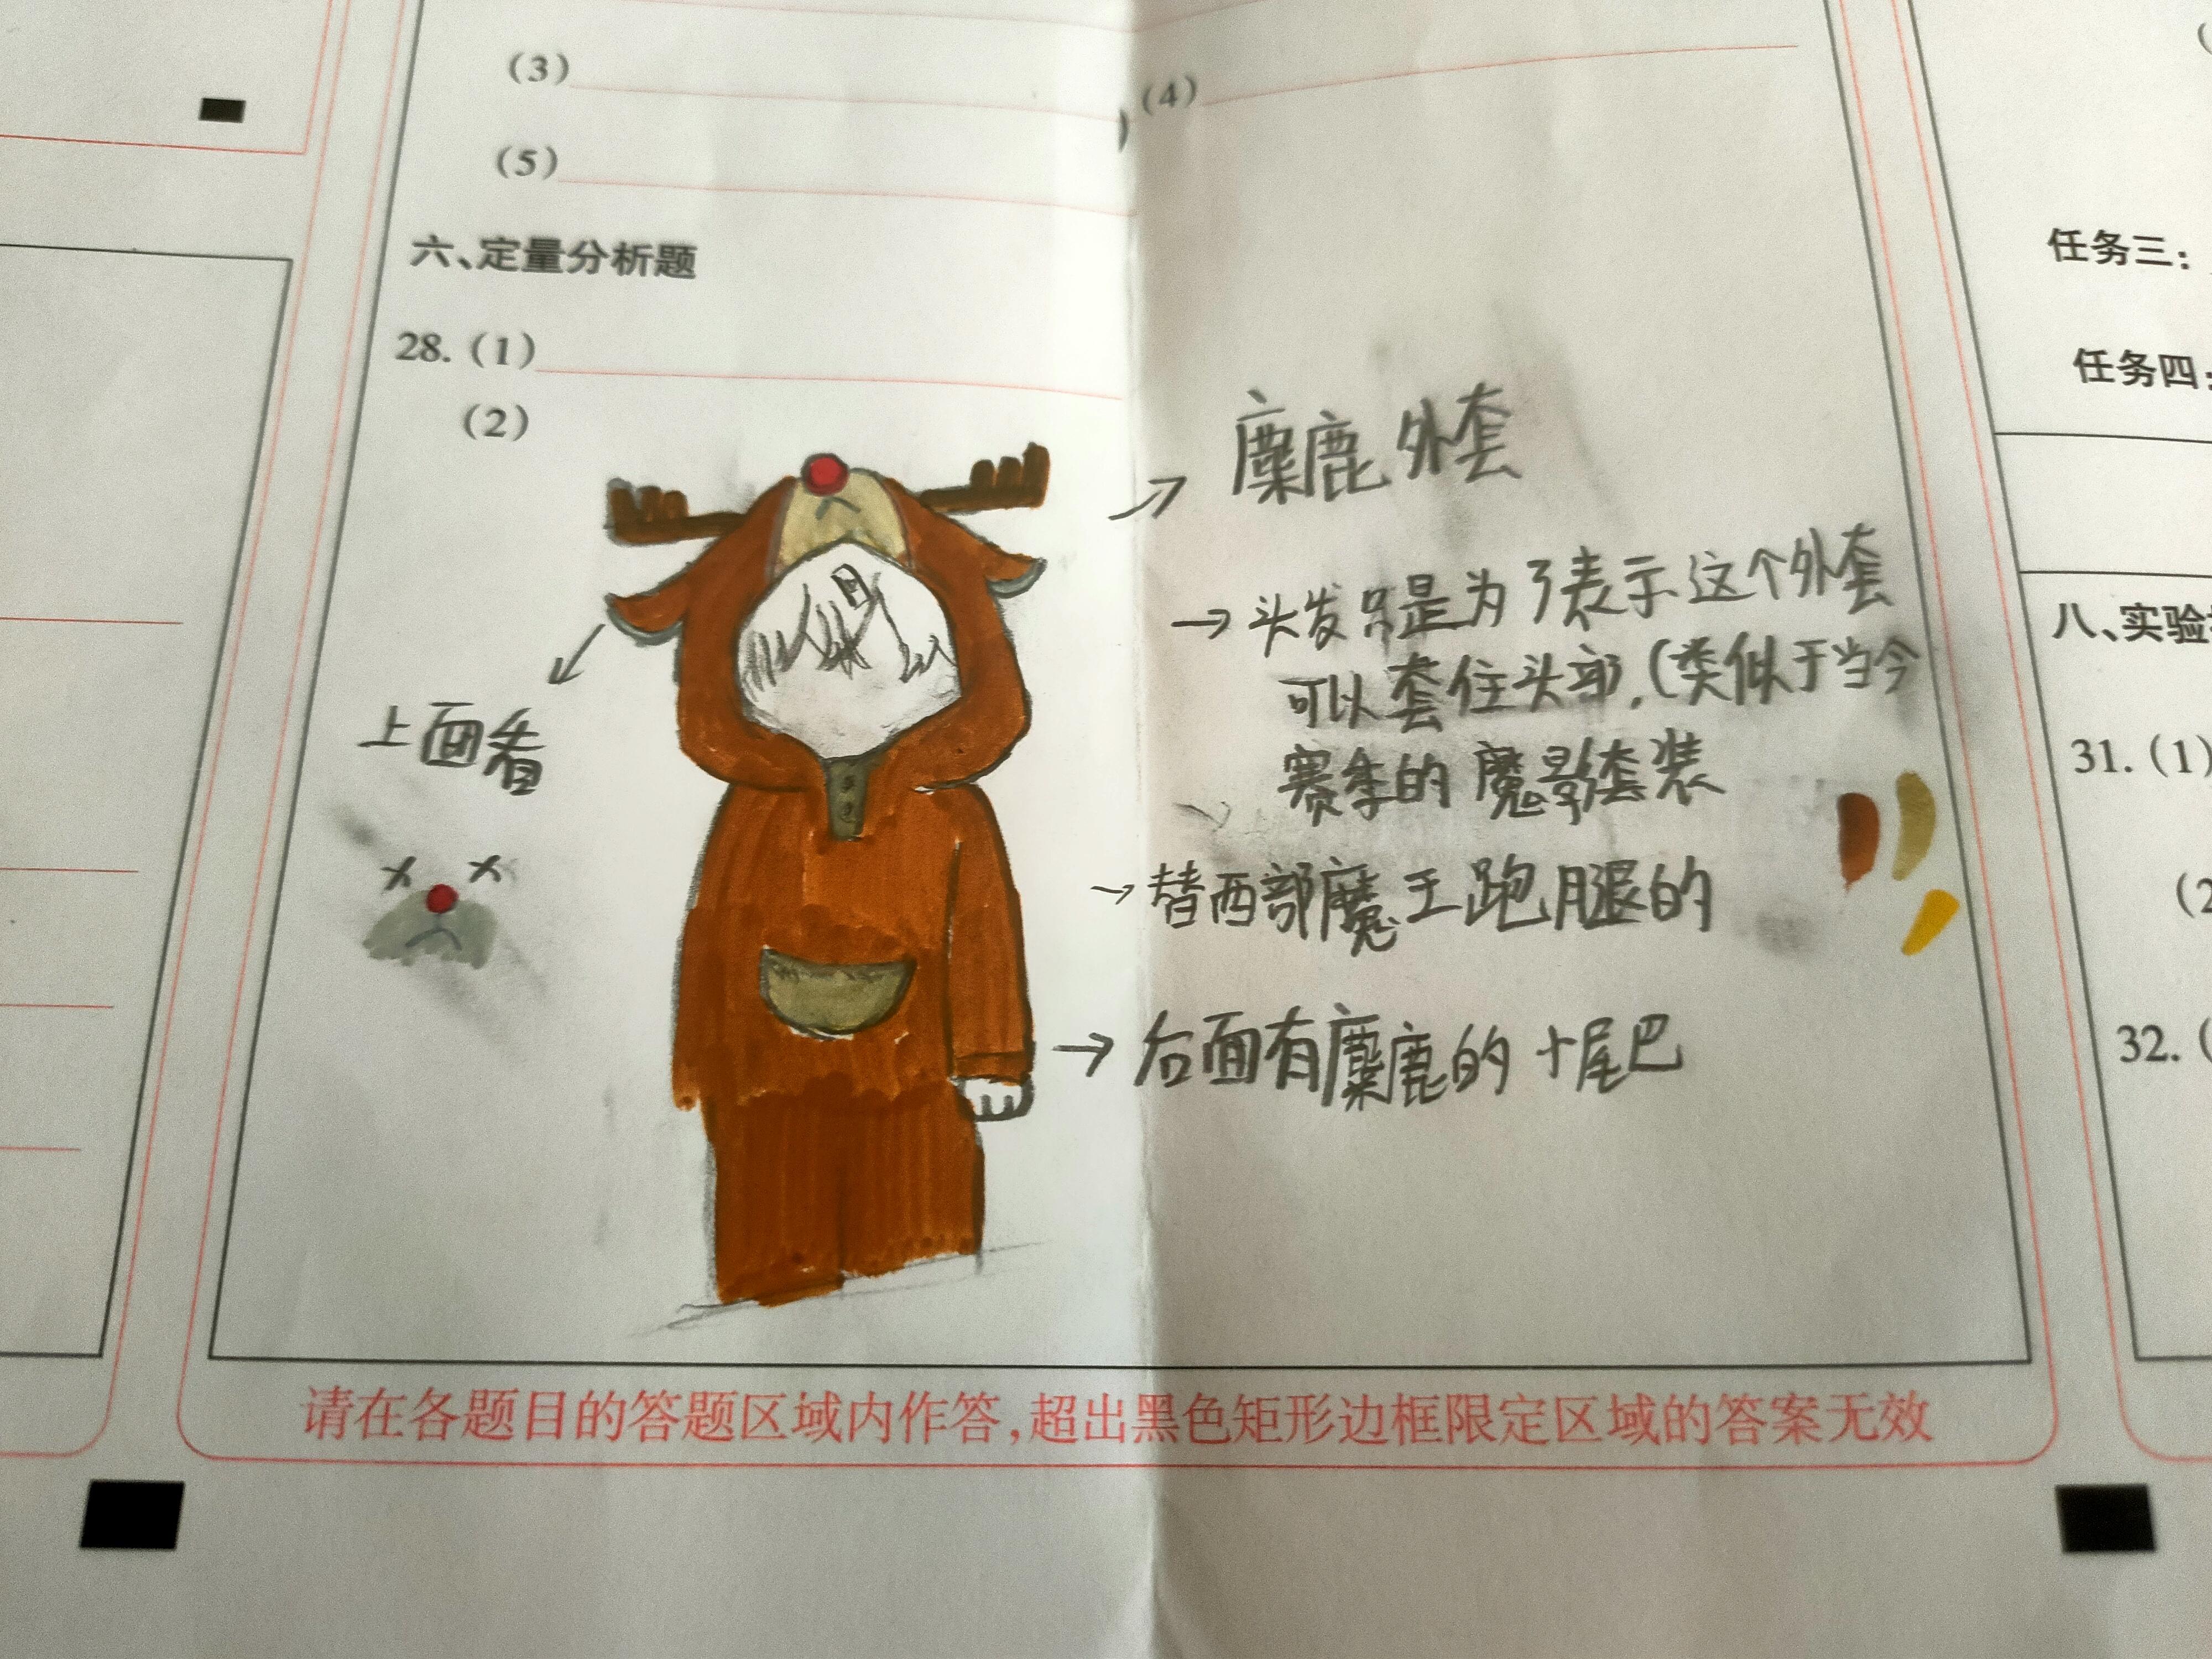 (3)
(4)
(5)
六、定量分析题
28. (1)
(2)
麋鹿外套
→头发只是为了表示这个外套
可以套住头部,(类似于当今
赛季的魔影套装
上面看
→替西部魔王跑腿的
→后面有麋鹿的小尾巴
请在各题目的答题区域内作答,超出黑色矩形边框限定区域的答案无效
任务三:
任务四:
八、实验
31. (1)
(2
32. (